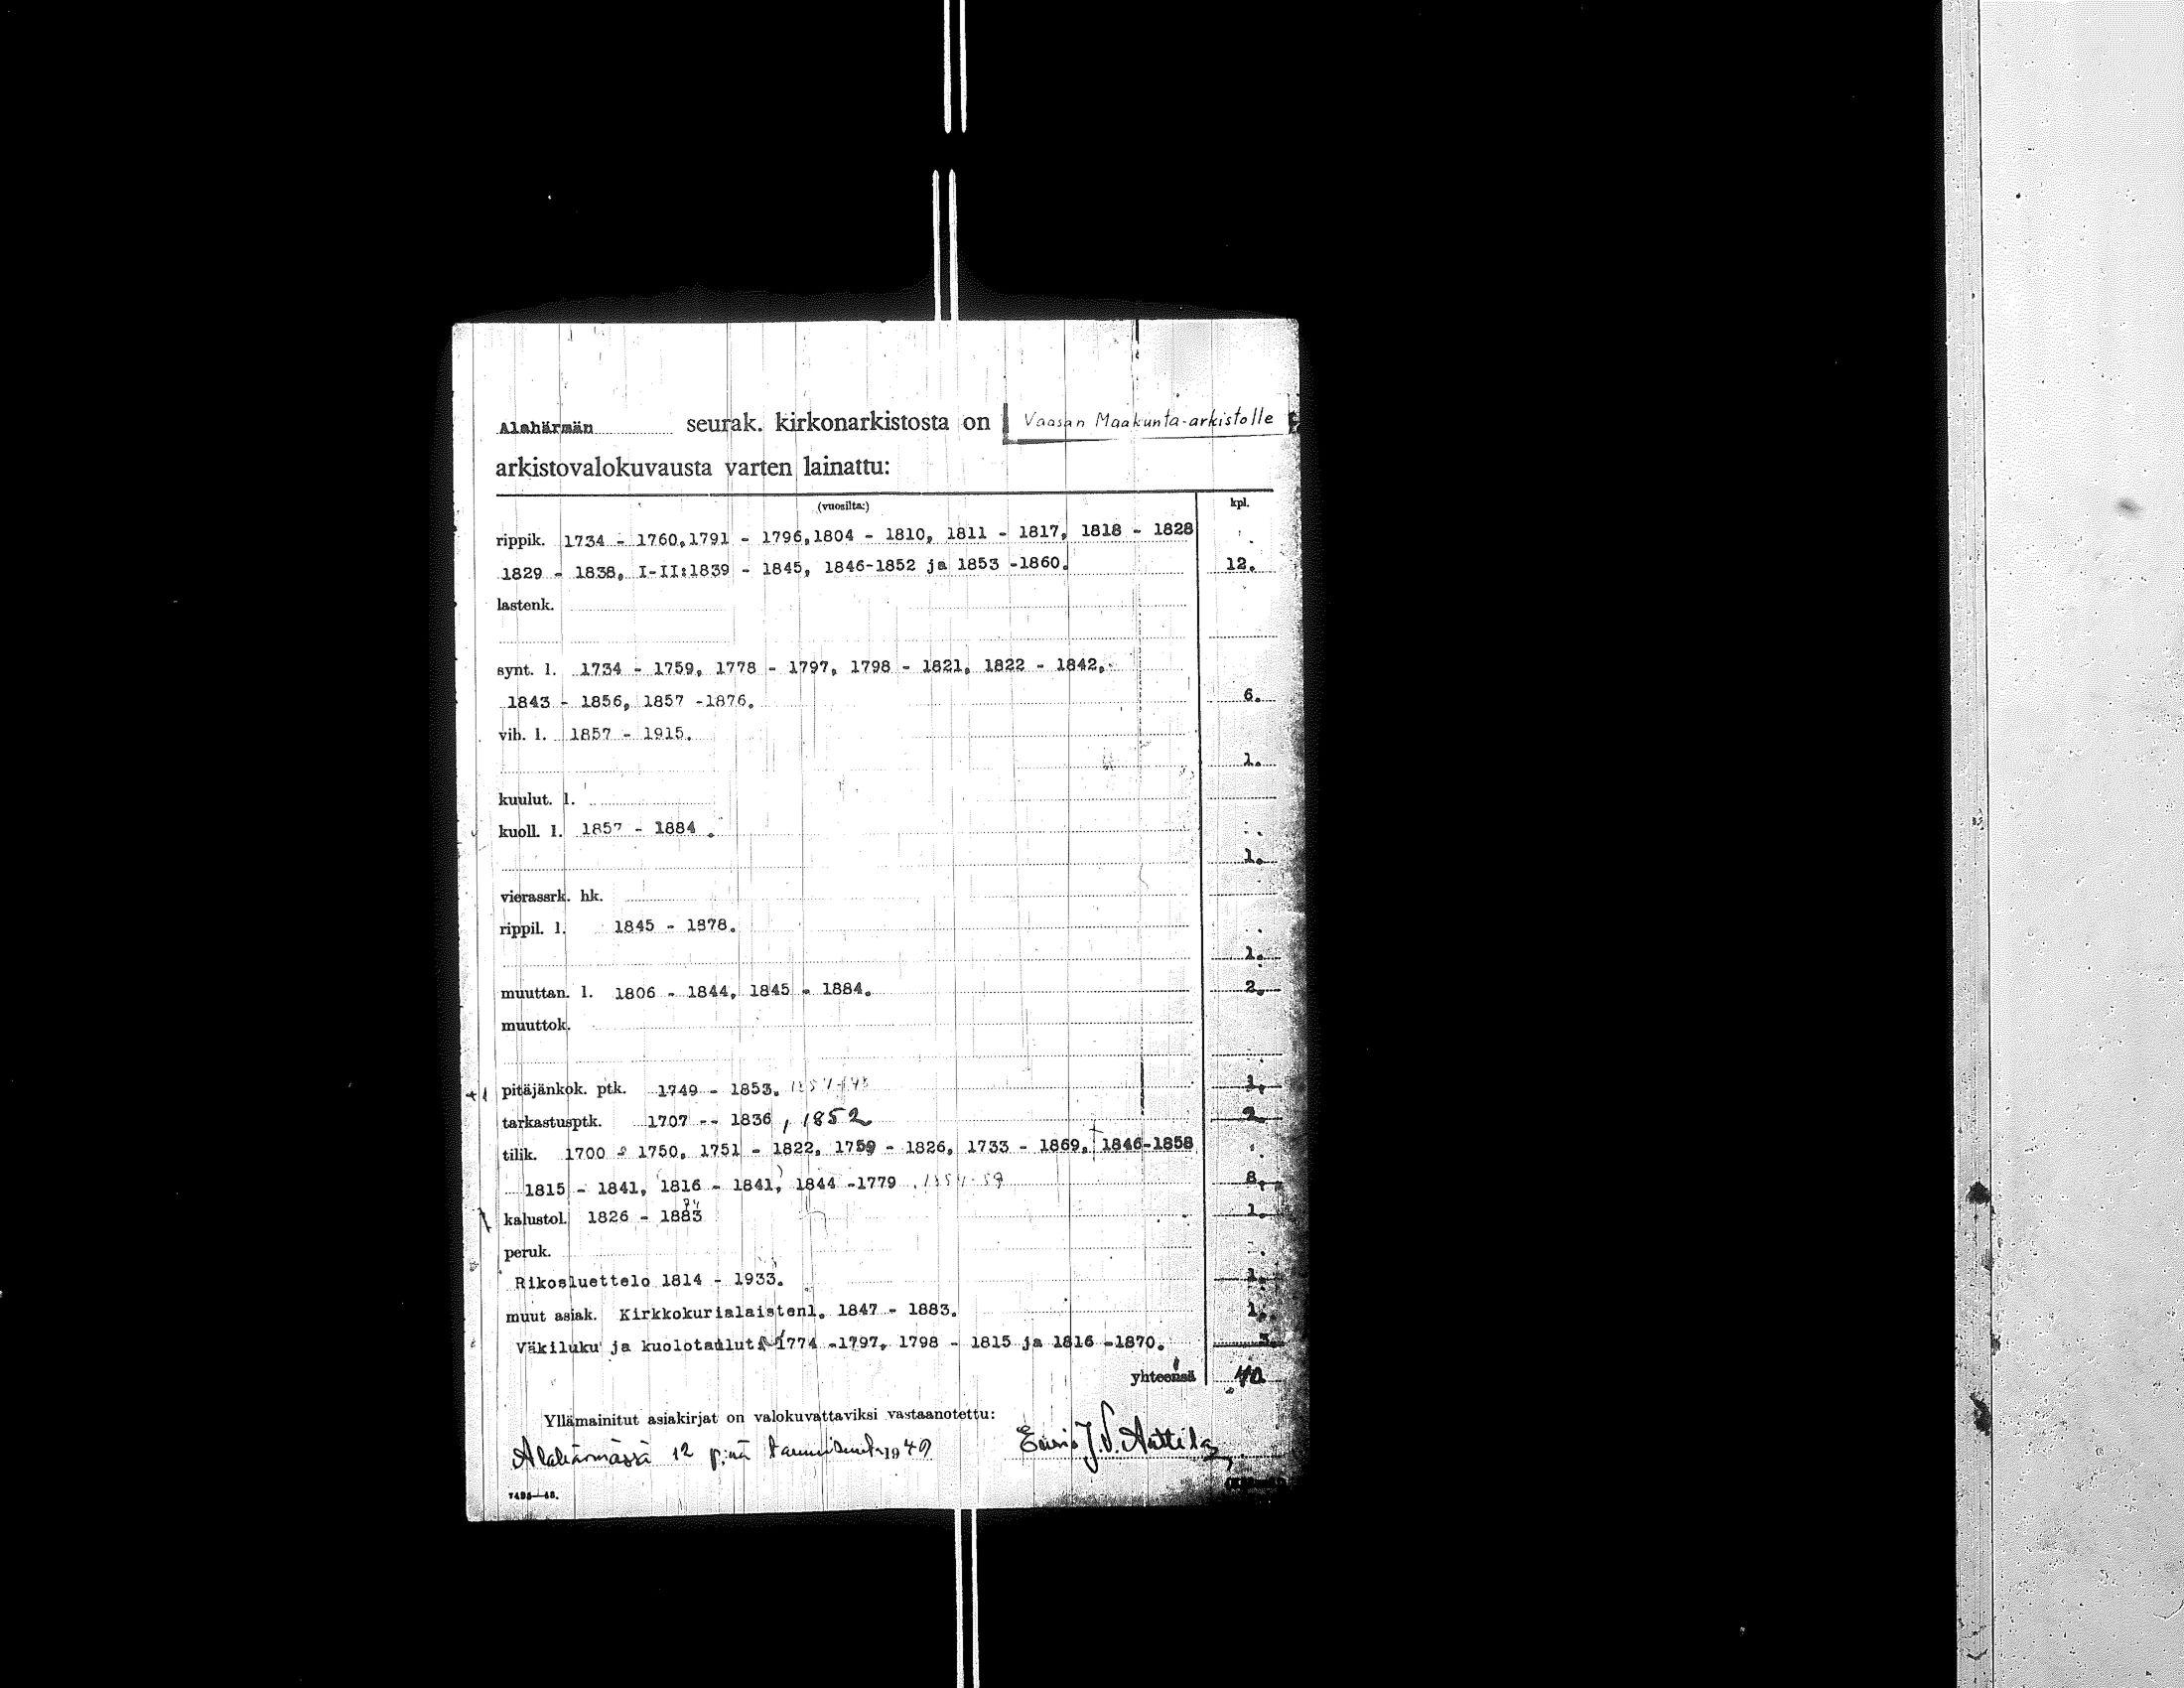 Alahärmän seurak. kirkonarkistosta on Vaasan Maakunta-arkistolle
arkistovalokuvausta varten lainattu:
(vuosilta:) kpl.
rippik. 1734 - 1760, 1791 - 1796, 1804 - 1810, 1811 - 1817, 1818 - 1828
1829 - 1838, I-II:1839 - 1845, 1846-1852 ja 1853 -1860. 12.
lastenk.
synt. l. 1734 - 1759, 1778 - 1797, 1798 - 1821, 1822 - 1842,
1843 - 1856, 1857 -1876. 6.
vih. l. 1857 - 1915.
1.
kuulut. l.
kuoll. l. 1857 - 1884.
1.
vierassrk. hk.
rippil. l. 1845 - 1878.
1.
muuttan. l. 1806 - 1844, 1845 - 1884. 2.
muuttok.
+1 pitäjänkok. ptk. 1749 - 1853. 1.
tarkastusptk. 1707 -- 1836, 1852 2.
tilik. 1700 - 1750, 1751 - 1822, 1759 - 1826, 1733 - 1869, 1846-1858
1815 - 1841, 1816 - 1841, 1844 -1779. 8.
kalustol. 1826 - 1883 1.
peruk.
Rikosluettelo 1814 - 1933. 1.
muut asiak. Kirkkokurialaistenl. 1847 - 1883. 1.
Väkiluku ja kuolotaulut 1774 -1797, 1798 - 1815 ja 1816 -1870. 3.
yhteensä 40
Yllämainitut asiakirjat on valokuvattaviksi vastaanotettu:
Alahärmässä 12 p:nä tammikuuta 1949 J.V. Anttila